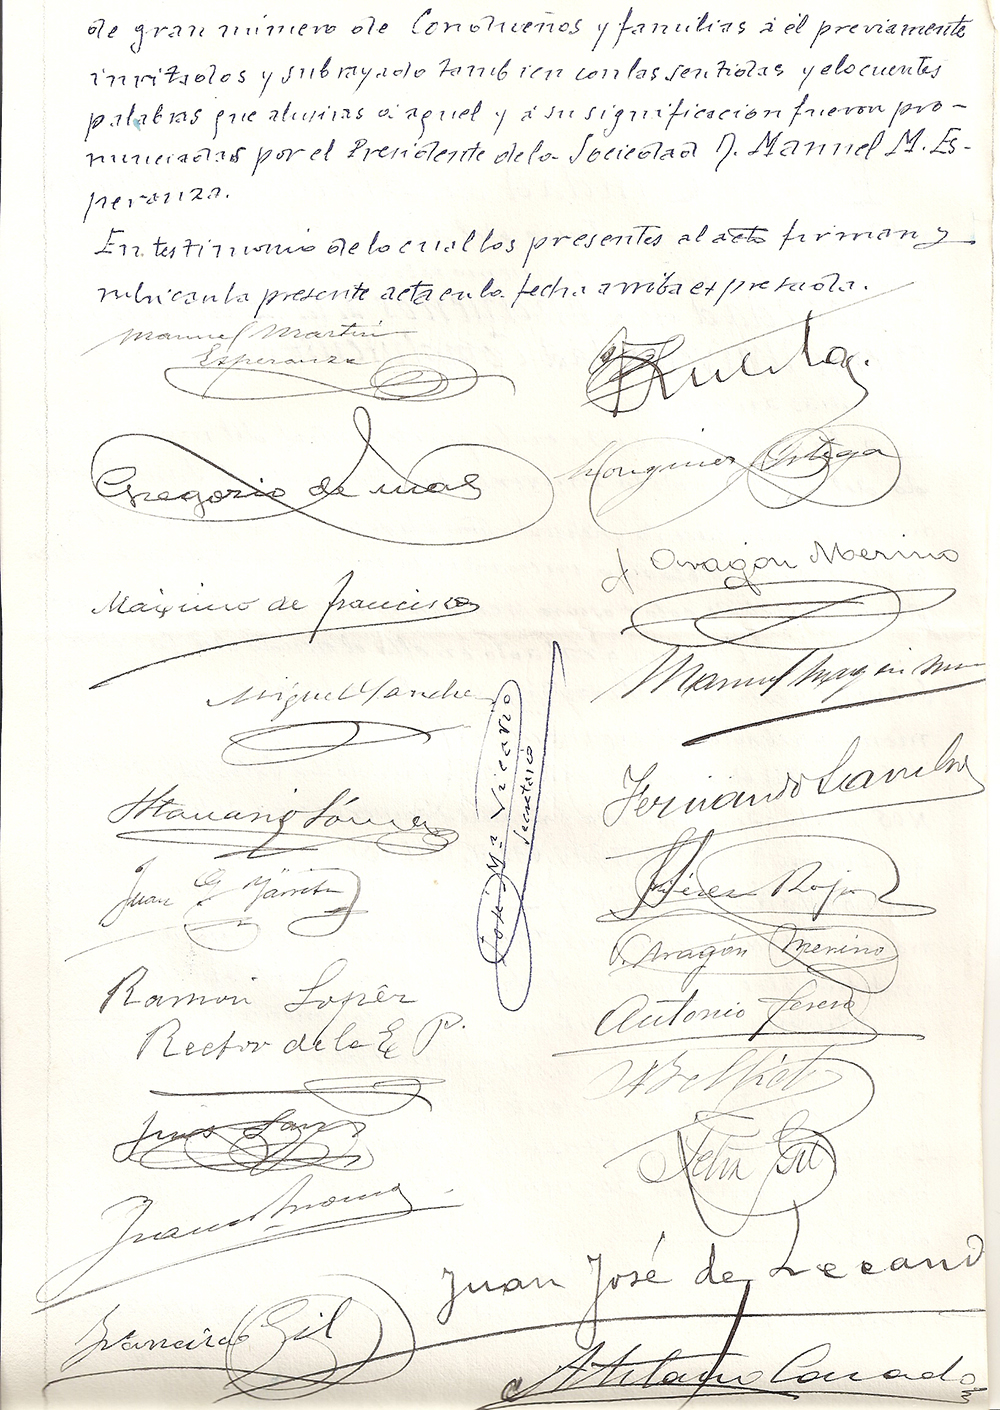 de gran número de Condueños y familias á él previamente
invitados y subrayado tambien con las sentidas y elocuentes
palabras que alusivas á aquel y á su significacion fueron pro-
nunciadas por el Presidente de la Sociedad D. Manuel M. Es-
peranza.
En testimonio de lo cual los presentes al acto firman y
rubrican la presente acta en la fecha arriba expresada.
Manuel Martin
Esperanza
Gregorio de
Ortega
J. Aragón Merino
Máximo de Francisco
Manuel
Miguel Sanchez
José Mª Vicario
Secretario
Fernando
Mariano
Juan G.
Rojo
Aragón Merino
Ramón Lopêz
Rector de la E P.
Antonio
Felix Gil
Juan José de
Francisco Gil
Atilano